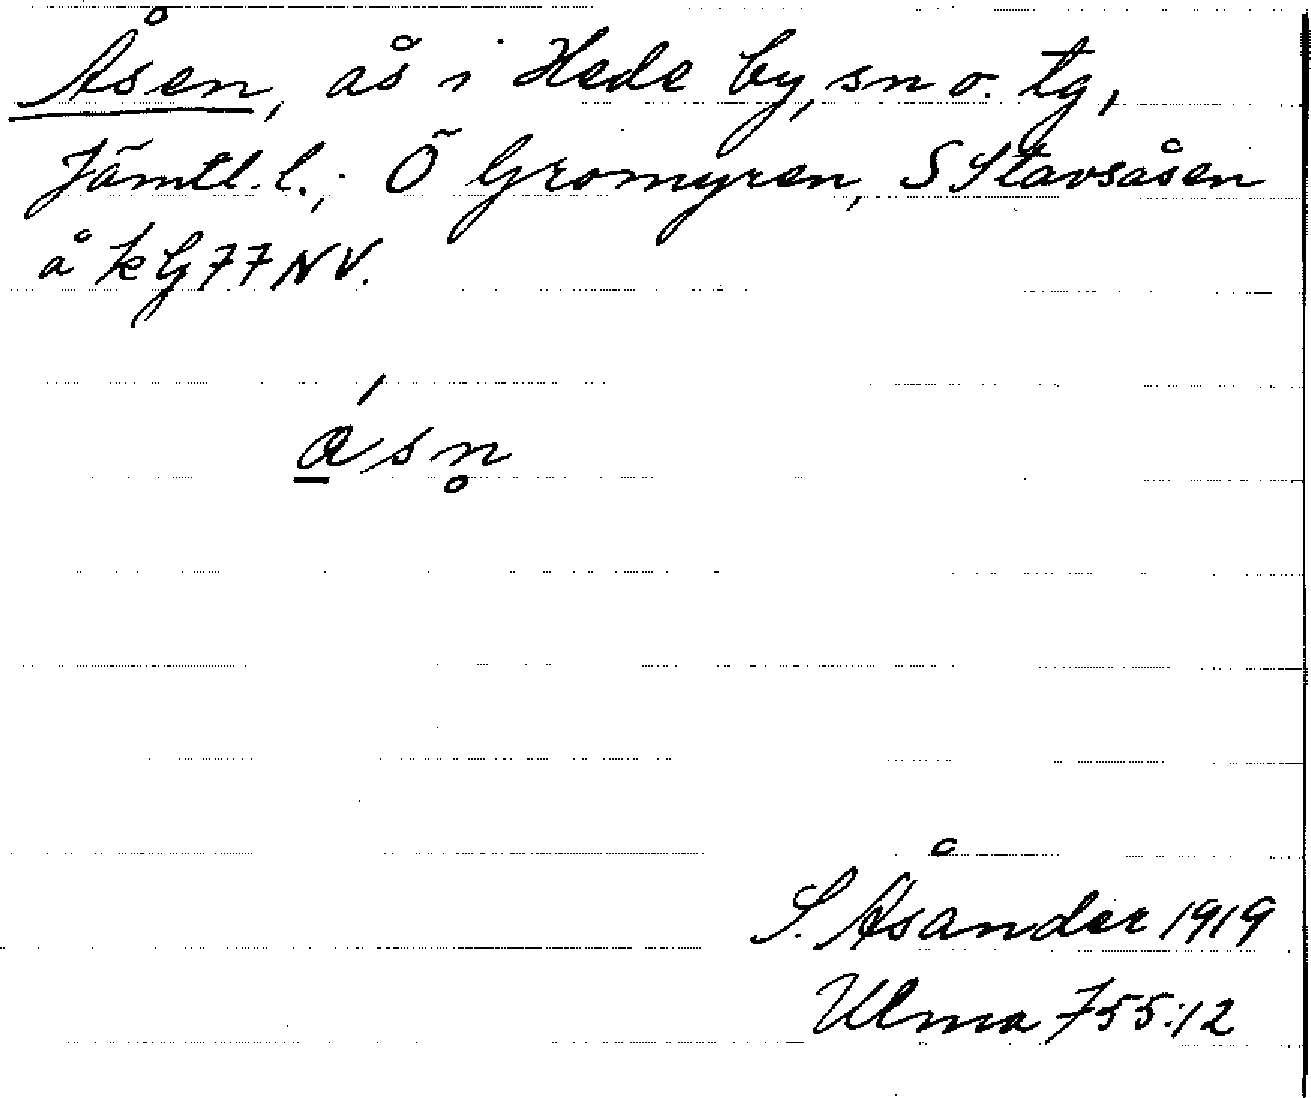 Åsen, ås i Hede by, sn o. tg,
Jämtl. l.; Ö Gromyren, S Stavsåsen
å kG77NV.
a̱´sn̥
S. Åsander 1919
Ulma 755:12